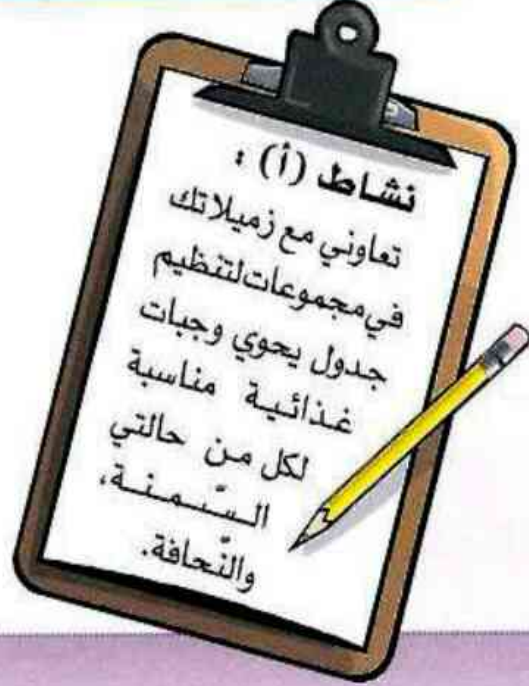 نشاط (أ) :
تعاوني مع زميلاتك
في مجموعات لتنظيم
جدول يحوي وجبات
غذائية مناسبة
لكل من حالتي
السّمنة،
والنّحافة.